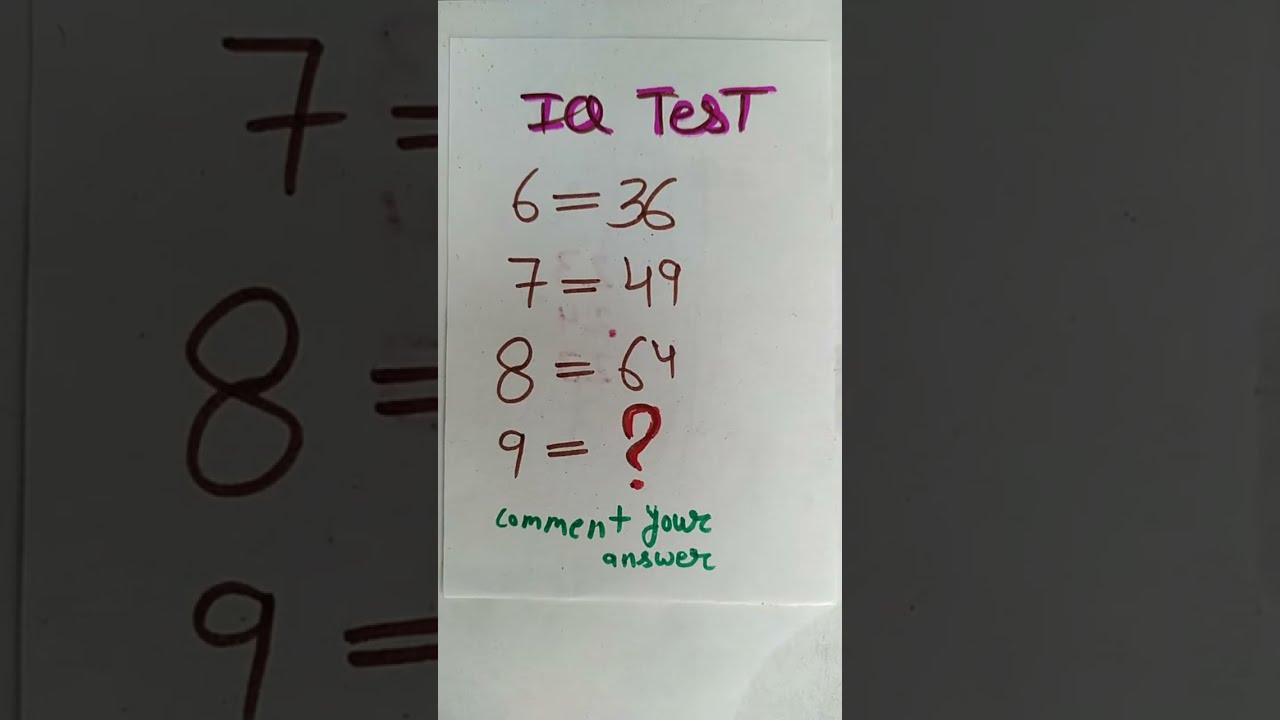 IQ TesT
6 = 36
7 = 49
8 = 64
9 = ?
comment your
answer
7 =
8 =
9 =